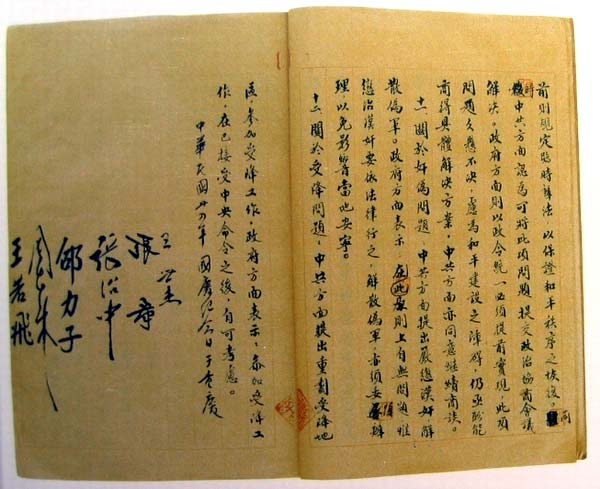 前則規定臨時辦法，以保證和平秩序之恢復。同
時中共方面認為可將此項問題提交政治協商會議
解決。政府方面則以政令統一必須提前實現，此項
問題久懸不決，慮為和平建設之障礙，仍亟盼能
商得具體解決方案，中共方面亦同意繼續商談。
十一、關於奸偽問題，中共方面提出嚴懲漢奸解
散偽軍。政府方面表示，在此原則上自無問題，惟
懲治漢奸要依法律行之，解散偽軍，亦須妥慎辦
理，以免影響當地安寧。
十二、關於受降問題，中共方面提出重劃受降地
區，參加受降工作，政府方面表示，參加受降工
作，在已接受中央命令之後，自可考慮。
中華民國卅四年國慶紀念日于重慶
王世杰
張羣
張治中
邵力子
周恩來
王若飛